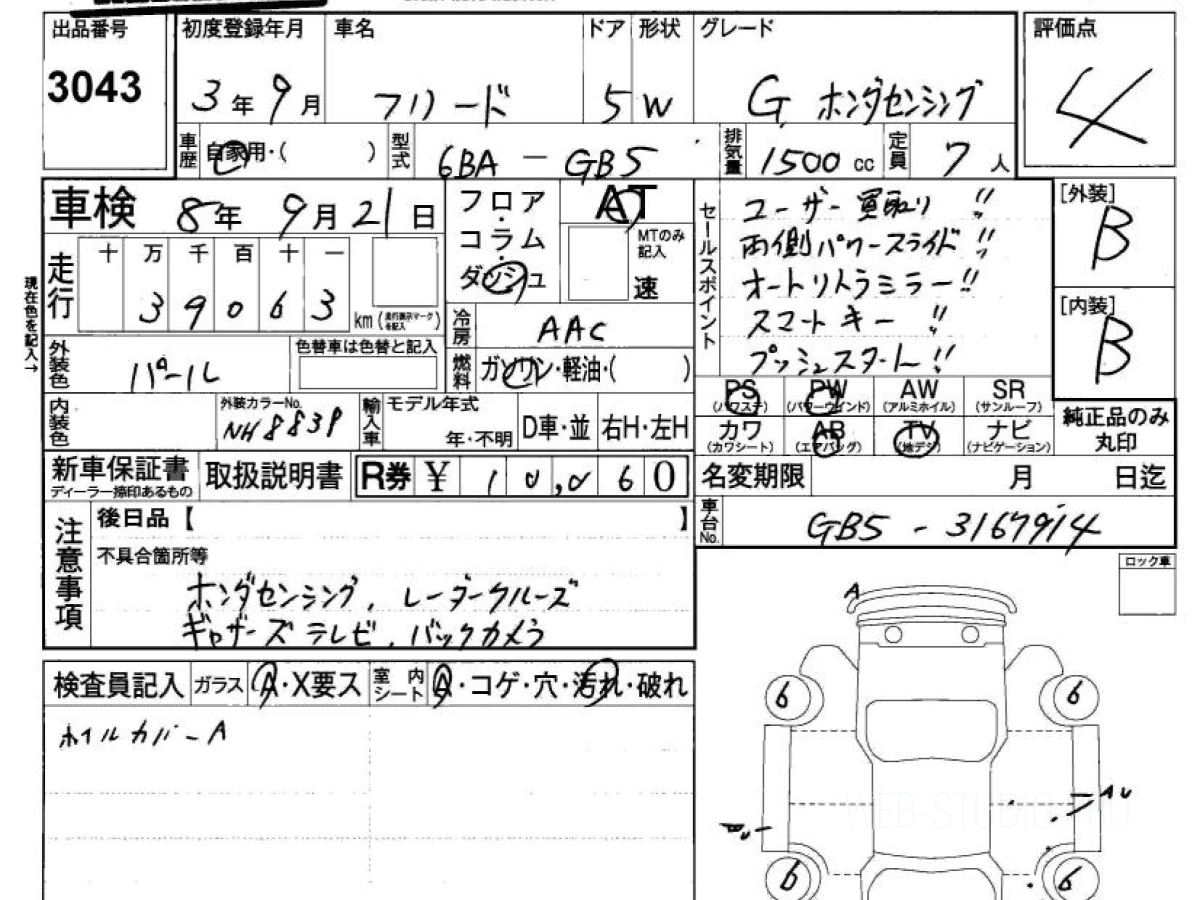 出品番号 初度登録年月 車名 ドア 形状 グレード 評価点
3043 3年9月 フリード 5 W G ホンダセンシング 4
車歴 自家用・( ) 型式 6BA-GB5 排気量 1500cc 定員 7人
車検 8年9月21日 フロア・コラム・ダッシュ AT セールスポイント ユーザー買取り!! [外装] B
MTのみ記入 速 両側パワースライド!!
走行 十 万 千 百 十 一 オートリトラミラー!!
39063 km (走行表示マークを記入) 冷房 AAC スマートキー!! [内装] B
現在色を記入→
外装色 パール 色替車は色替と記入 燃料 ガソリン・軽油・( ) プッシュスタート!!
PS (パワステ) PW (パワーウインド) AW (アルミホイル) SR (サンルーフ)
内装色 外装カラーNo. NH883P 輸入車 モデル年式 年・不明 D車・並 右H・左H カワ (カワシート) AB (エアバッグ) TV (地デジ) ナビ (ナビゲーション) 純正品のみ丸印
新車保証書 ディーラー捺印あるもの 取扱説明書 R券 ¥ 10,060 名変期限 月 日迄
注意事項 後日品【 】 車台No. GB5-3167914
不具合箇所等 ロック車
ホンダセンシング、レーダークルーズ
ギャザーズテレビ、バックカメラ
A
検査員記入 ガラス A・X要ス 室内シート A・コゲ・穴・汚れ・破れ
6 6
ホイルカバーA
AU
WEB-STUDIO.PRO
6 6